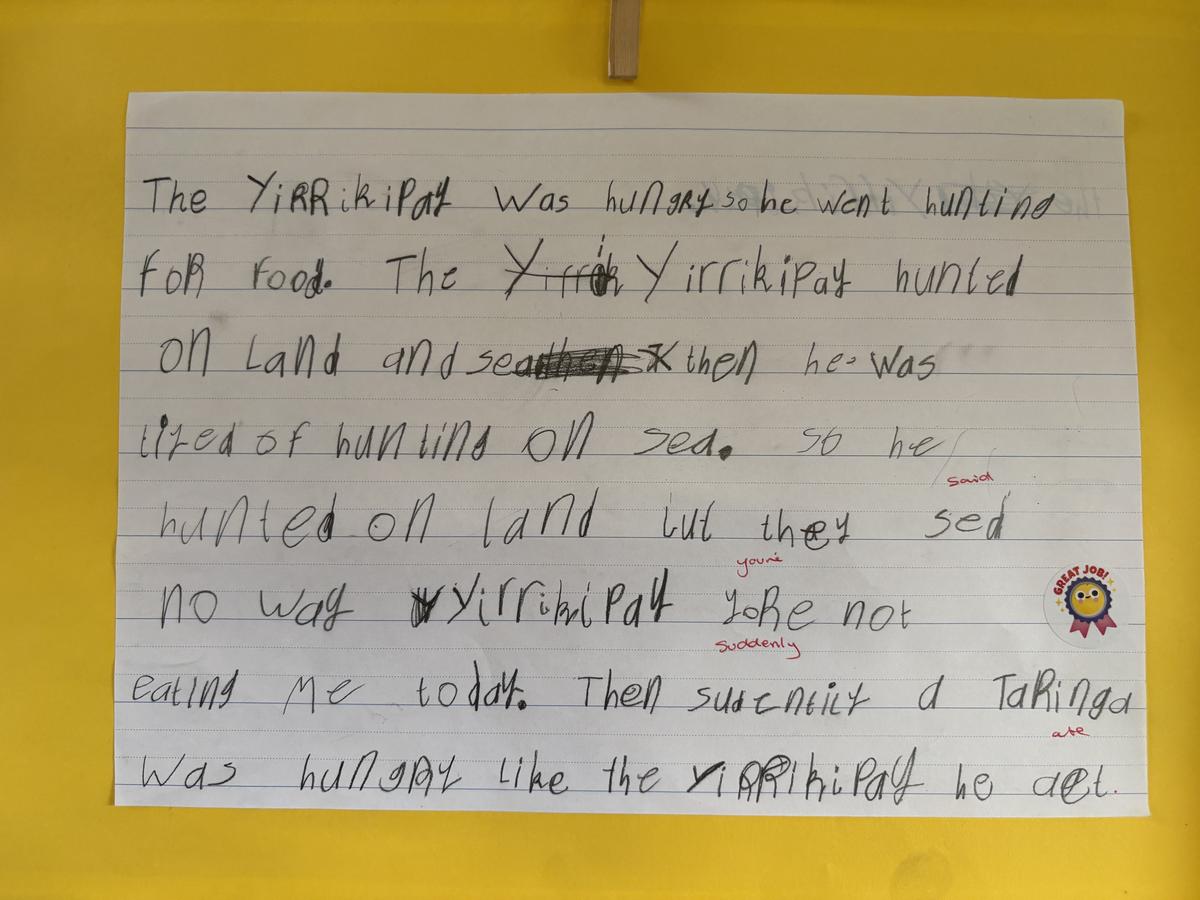 The YiRRikiPay Was hungRy so he went hunting
foR food. The Yirrik Yirrikipay hunted
on Land and sea then he was
tired of hunting on sea. so he
said
hunted on land but they sed
you're
no way Yirrikipay yoRe not
GREAT JOB!
suddenly
eating Me today. Then sudentily a TaRinga
ate
Was hungRy Like the YiRRikiPay he aet.